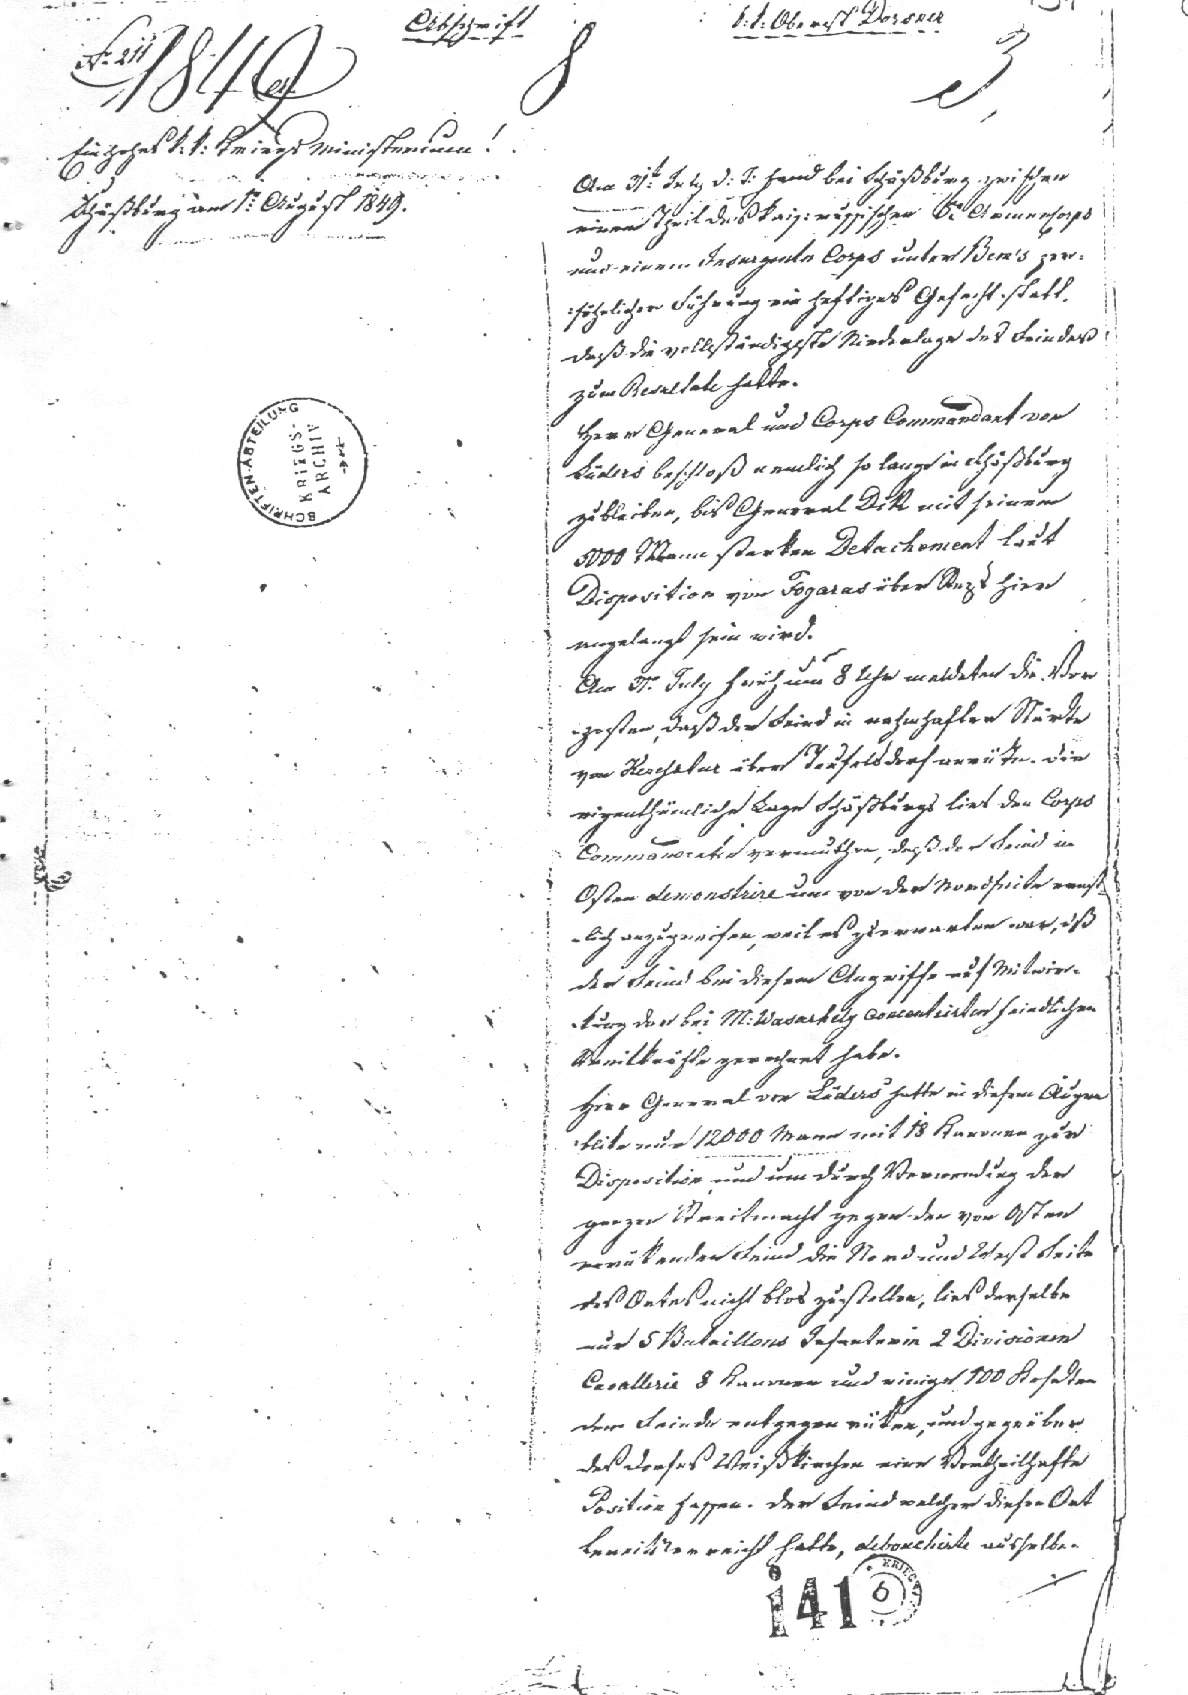 Abschrift
k: k: Oberst Dorsner
No 211
1849
8
3
Ein hohes k: k: Kriegs Ministerium!
Schäßburg am 1: August 1849.
SCHRIFTEN-ABTEILUNG
KRIEGS-
ARCHIV
Am 31t: July d: J: fand bei Schäßburg zwischen
einem Theil des kais: russischen 5t Armeecorps
und einem Insurgenten Corps unter Bem's per-
söhnlicher Führung ein heftiges Gefecht statt,
daß die vollständigste Niederlage des Feindes
zum Resultate hatte.
Herr General und Corps Commandant von
Lüders beschloß nemlich so lange in Schäßburg
zubleiben, bis General Dik mit seinem
5000 Mann starken Detachement laut
Disposition von Fogaras über Reps hier
angelangt sein wird.
Am 31t: July früh um 8 Uhr meldeten die Vor
posten, daß der Feind in nahmhafter Stärke
von Kereßtur über Teufelsdorf anrüke. Die
eigenthümliche Lage Schäßburgs lies den Corps
Commandanten vermuthen, daß der Feind in
Osten demonstrire um von der Nordseite ernst
lich anzugreifen, weil es zu erwarten war, daß
der Feind bei diesem Angriffe auf Mitwir-
kung der bei M: Vasarhely concentrirten feindlichen
Streitkräfte gerechnet habe.
Herr General von Lüders hatte in diesem Augen
blike nur 12000 Mann mit 18 Kanonen zur
Disposition und um durch Verwendung der
ganzen Streitmacht gegen den von Osten
anrükenden Feind die Nord und West Seite
des Ortes nicht blos zustellen, lies derselbe
nur 5 Bataillons Infanterie 2 Divisionen
Cavallerie 8 Kanonen und einige 100 Kosaken
dem Feinde entgegen rüken, und gegenüber
des Dorfes Weißkirchen eine Vortheilhafte
Position fassen. Der Feind welcher diesen Ort
bereits erreicht hatte, debouchirte ausselbe-
141
6